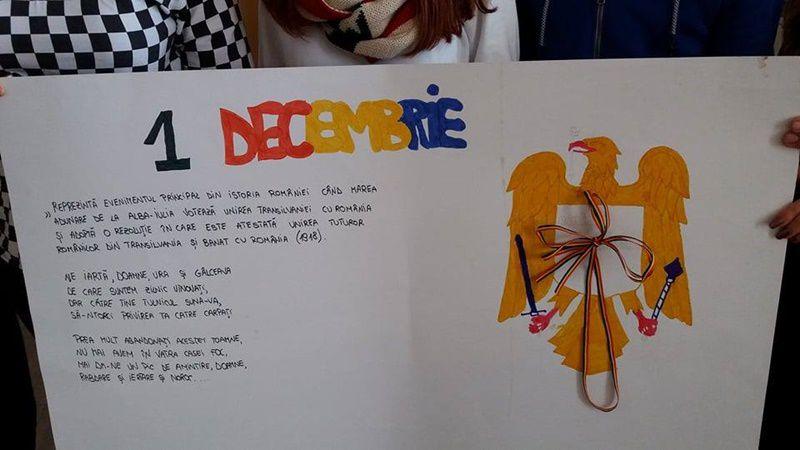 1 DECEMBRIE
„ REPREZINTĂ EVENIMENTUL PRINCIPAL DIN ISTORIA ROMÂNIEI CÂND MAREA
ADUNARE DE LA ALBA-IULIA VOTEAZĂ UNIREA TRANSILVANIEI CU ROMÂNIA
ȘI ADOPTĂ O REZOLUȚIE ÎN CARE ESTE ATESTATĂ UNIREA TUTUROR
ROMÂNILOR DIN TRANSILVANIA ȘI BANAT CU ROMÂNIA (1918).
NE IARTĂ, DOAMNE, URA ȘI GÂLCEAVA
DE CARE SUNTEM ZILNIC VINOVAȚI,
DAR CĂTRE TINE TULNICUL SUNA-VA,
SĂ-NTORCI PRIVIREA TA CĂTRE CARPAȚI
PREA MULT ABANDONAȚI ACESTEI TOAMNE,
NU MAI AVEM ÎN VATRA CASEI FOC,
MAI DĂ-NE UN PIC DE AMINTIRE, DOAMNE,
RĂBDARE ȘI IERTARE ȘI NOROC....